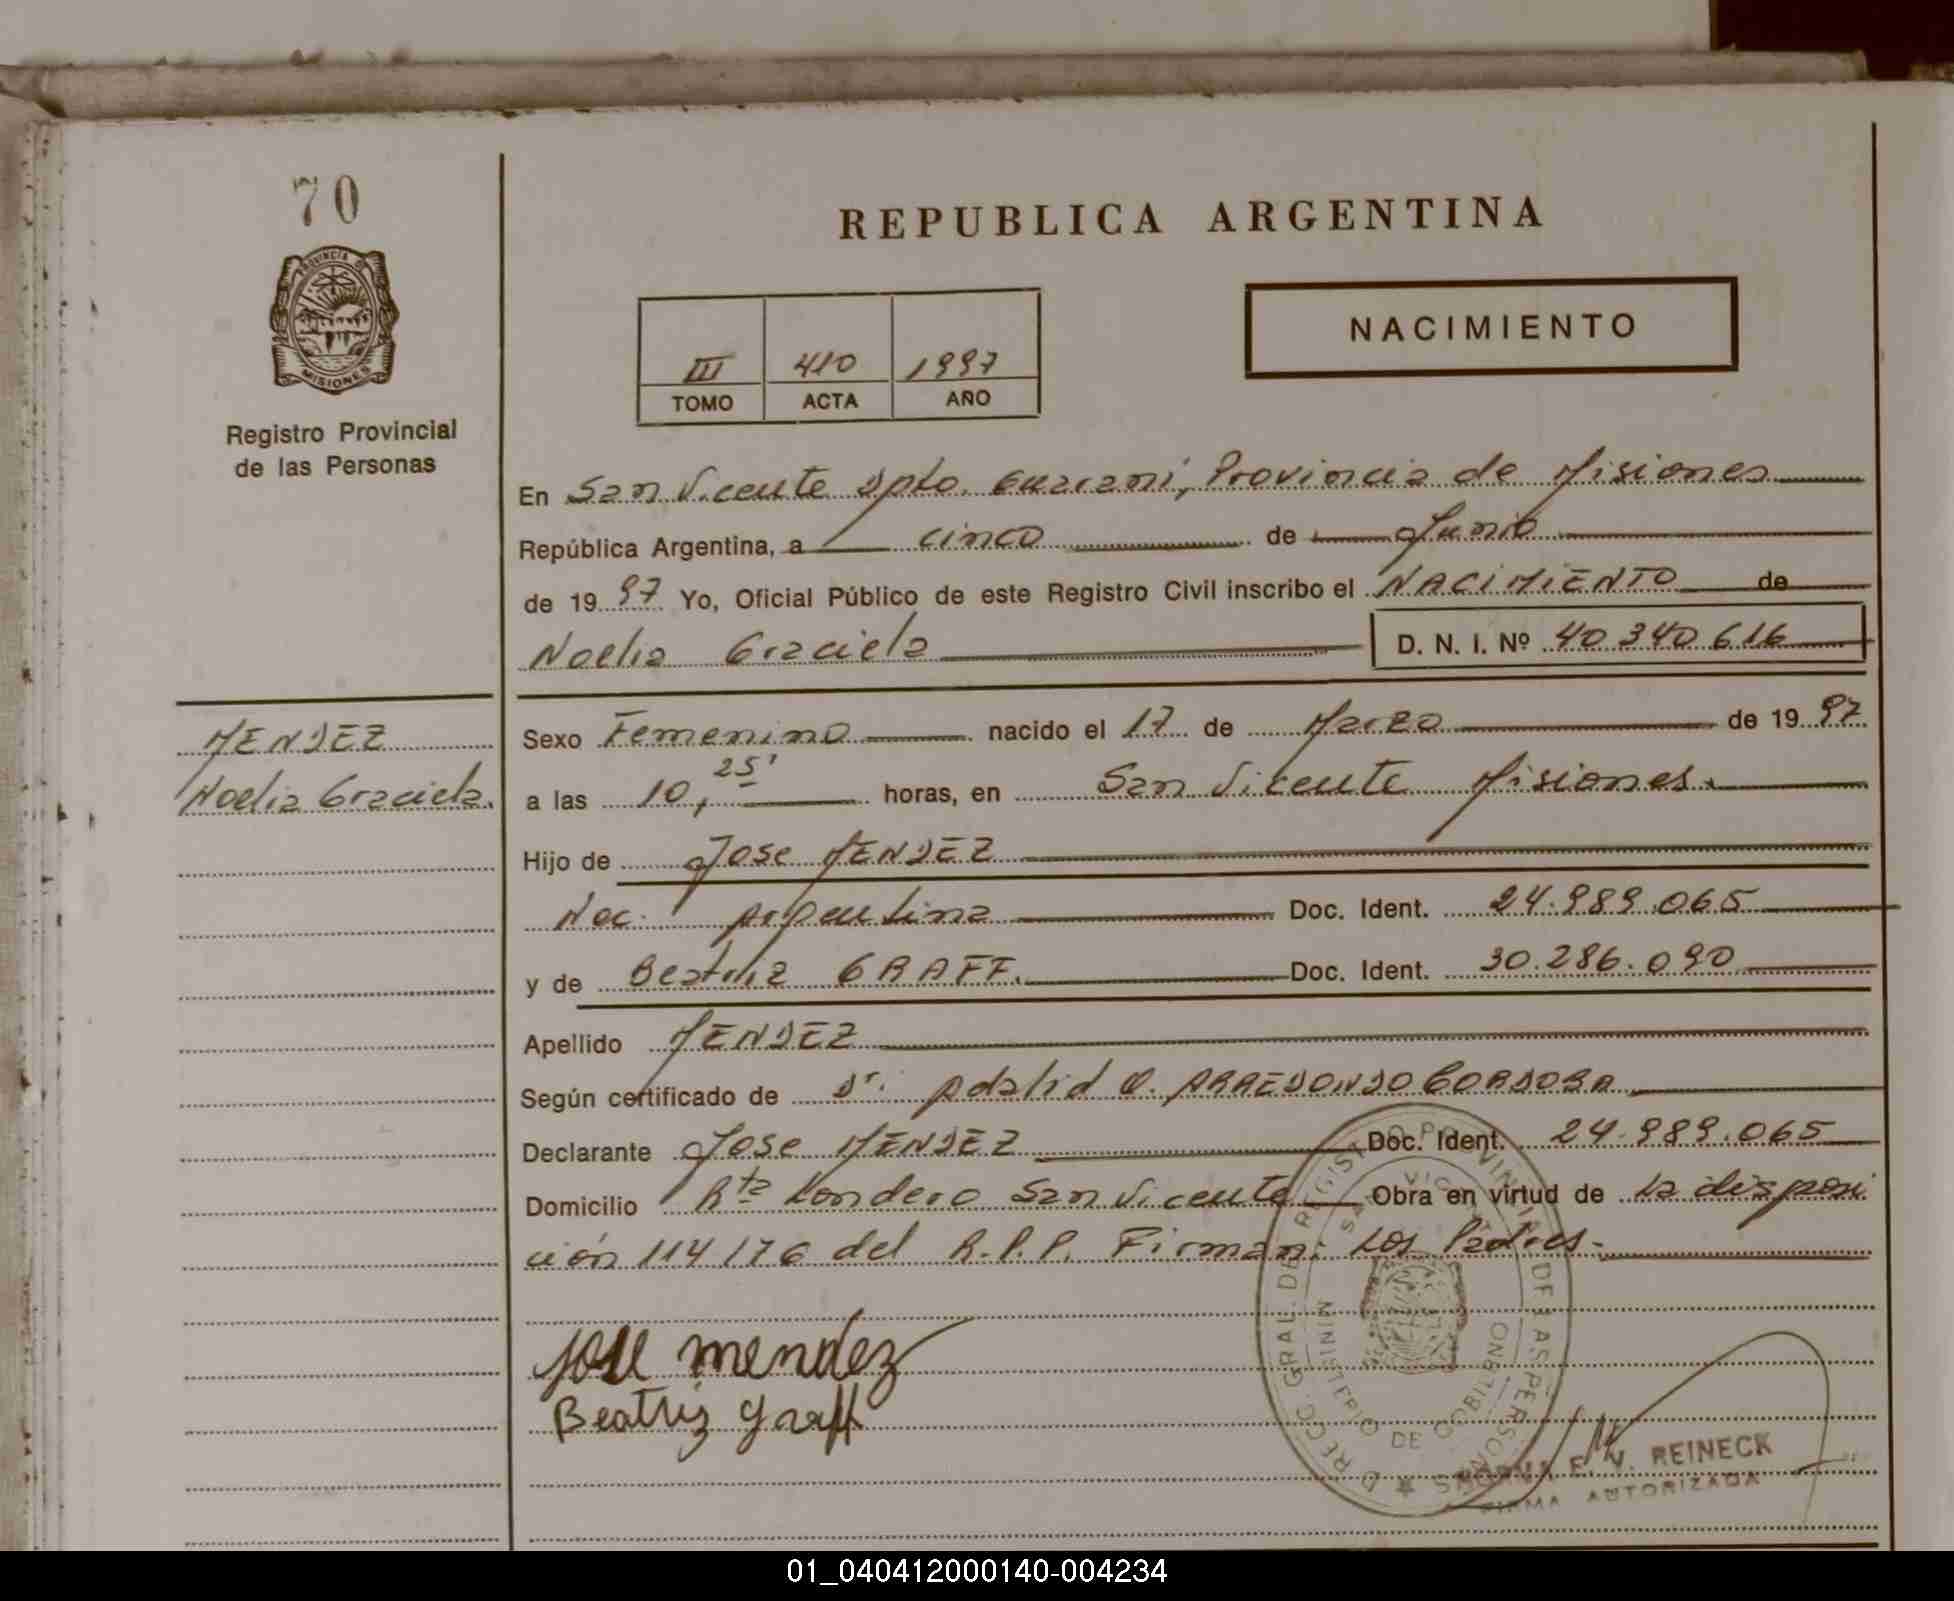 70
PROVINCIA DE
MISIONES
Registro Provincial
de las Personas
REPUBLICA ARGENTINA
NACIMIENTO
III 410 1997
TOMO ACTA AÑO
En San Vicente Dpto. Guarani, Provincia de Misiones
República Argentina, a cinco de Junio
de 1997 Yo, Oficial Público de este Registro Civil inscribo el NACIMIENTO de
Noelia Graciela D. N. I. Nº 40 340 616
MENDEZ
Noelia Graciela.
Sexo Femenino nacido el 17 de Marzo de 1997
a las 10,25' horas, en San Vicente Misiones.
Hijo de Jose MENDEZ
Nac. Argentina Doc. Ident. 24.989.065
y de Beatriz GRAFF. Doc. Ident. 30.286.090
Apellido MENDEZ
Según certificado de Dr. Adalid O. ARREDONDO CORDOBA
Declarante Jose MENDEZ Doc. Ident. 24.989.065
Domicilio Rta Londero San Vicente Obra en virtud de la disposi
ción 114/76 del R.P.P. Firman: Los Padres.-
Jose mendez
Beatriz graff
DIRECC. GRAL. DE REGISTRO PROVINCIAL DE LAS PERSONAS
SAN VICENTE
MINISTERIO DE GOBIERNO
E. V. REINECK
FIRMA AUTORIZADA
01_040412000140-004234